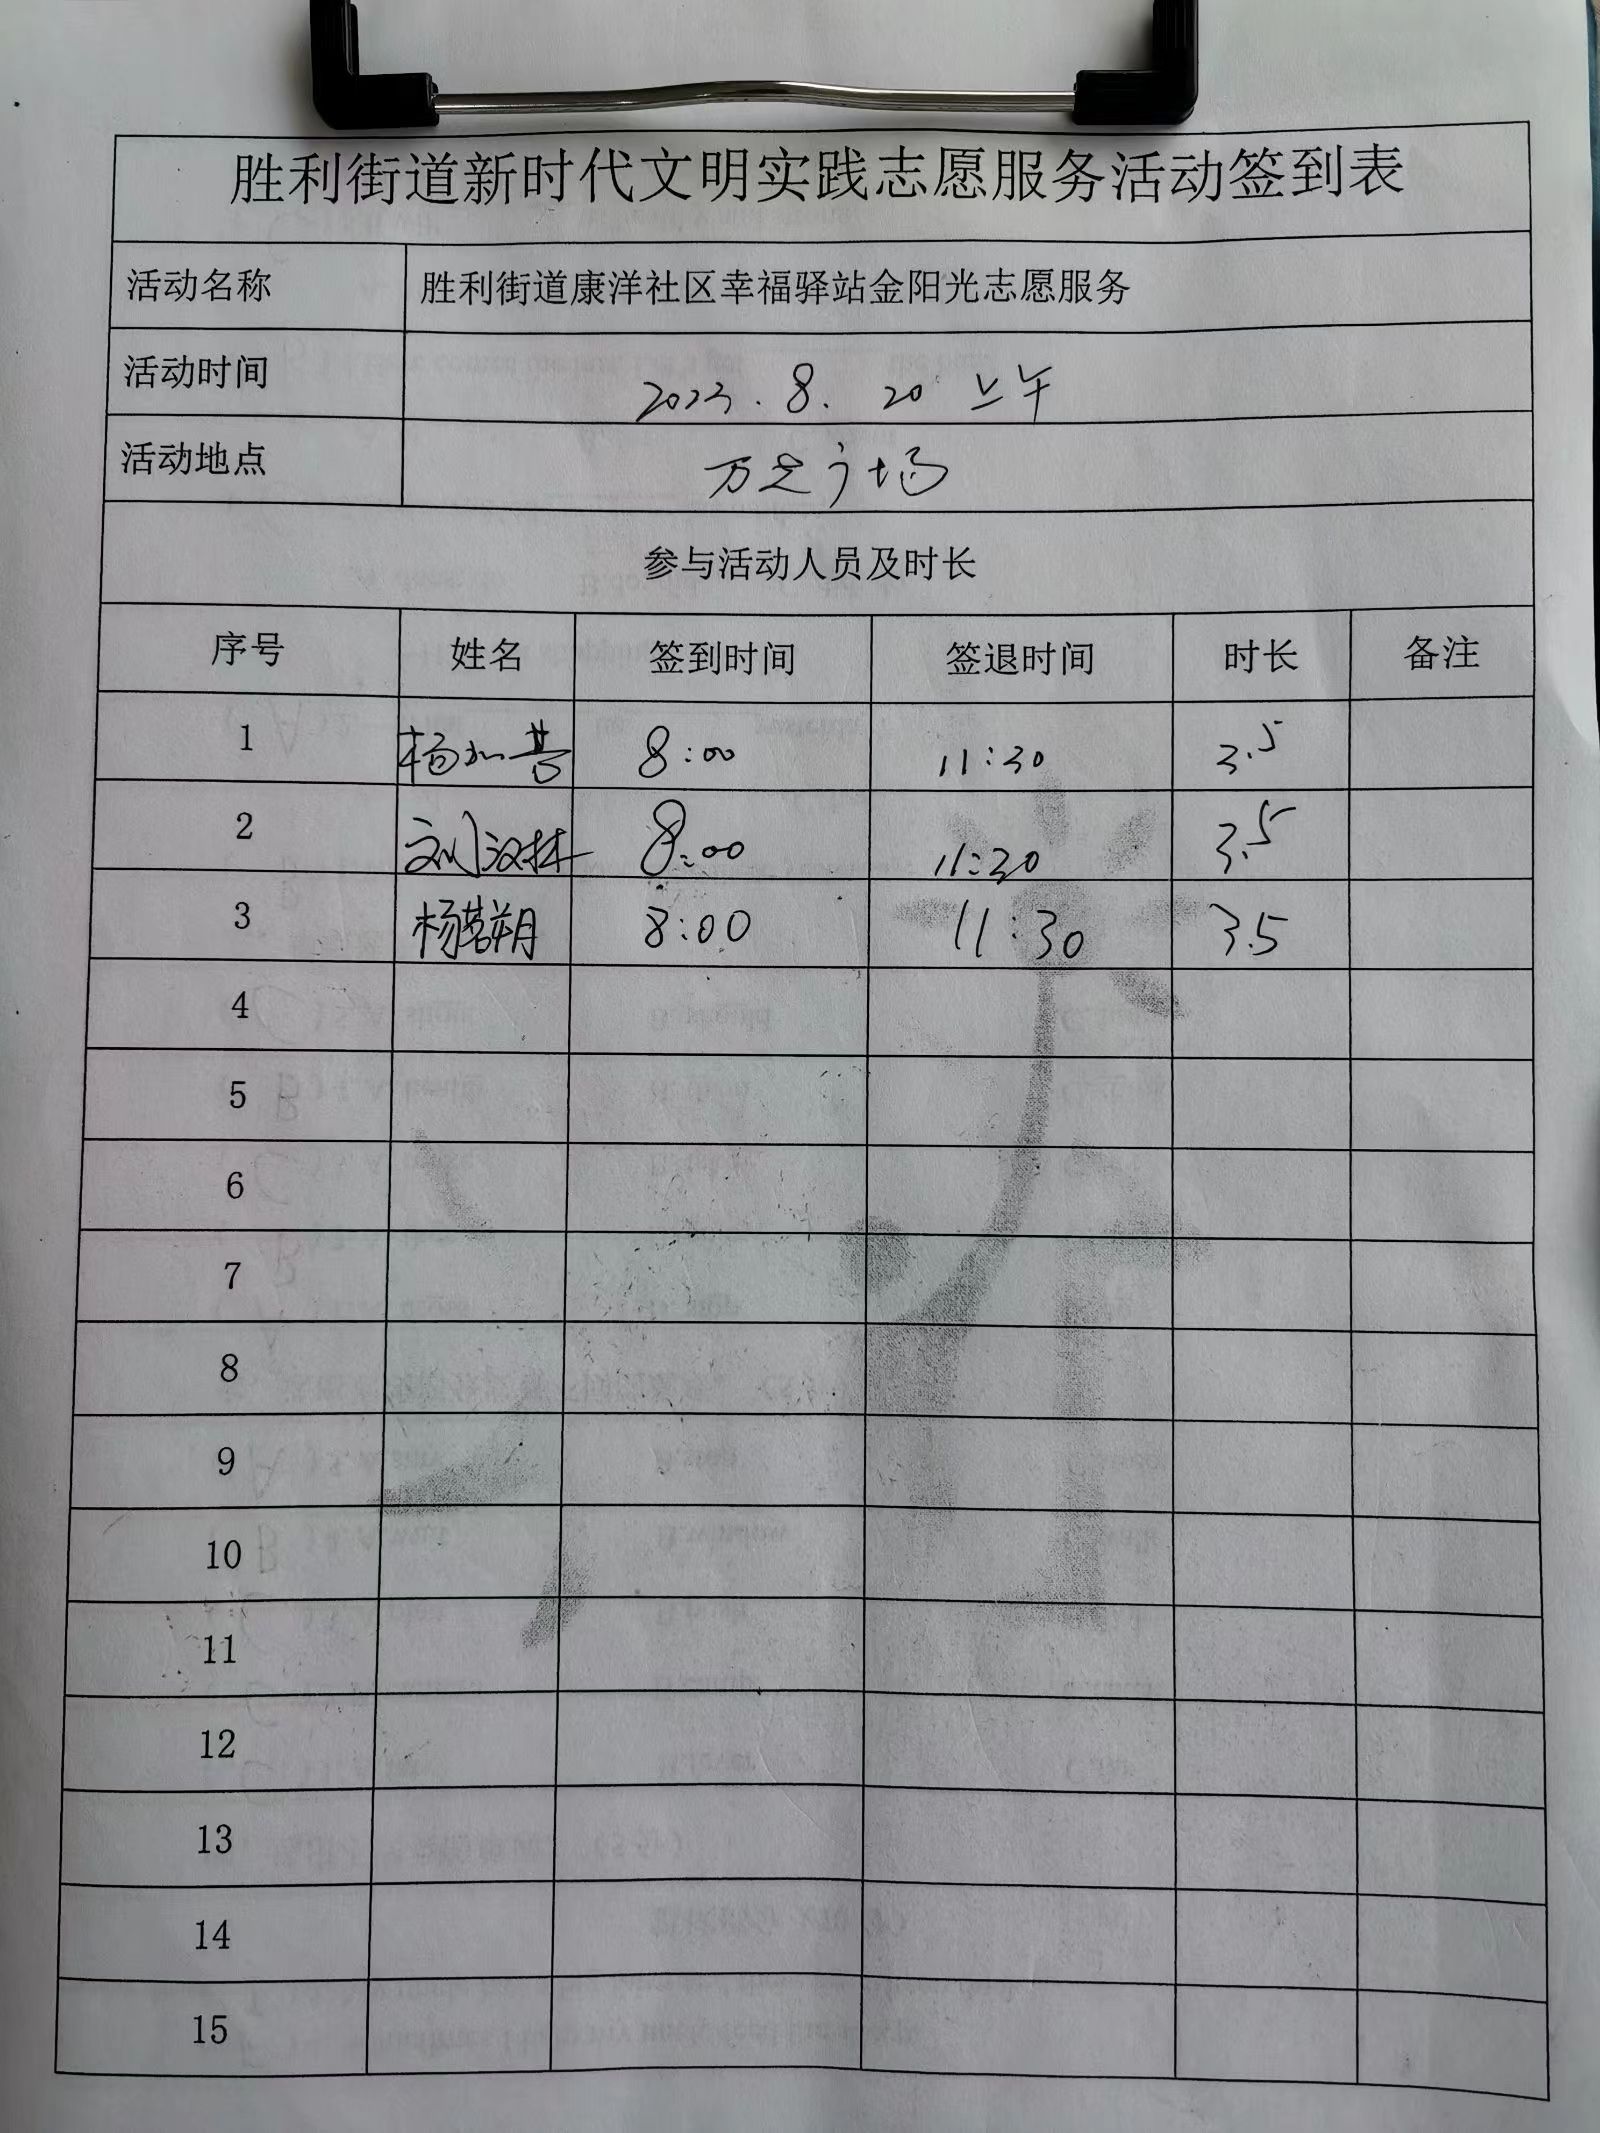 胜利街道新时代文明实践志愿服务活动签到表
活动名称 胜利街道康洋社区幸福驿站金阳光志愿服务
活动时间 2023.8.20 上午
活动地点 万达广场
参与活动人员及时长
序号 姓名 签到时间 签退时间 时长 备注
1 杨 8:00 11:30 3.5
2 刘汉林 8:00 11:30 3.5
3 杨茗朔 8:00 11:30 3.5
4
5
6
7
8
9
10
11
12
13
14
15